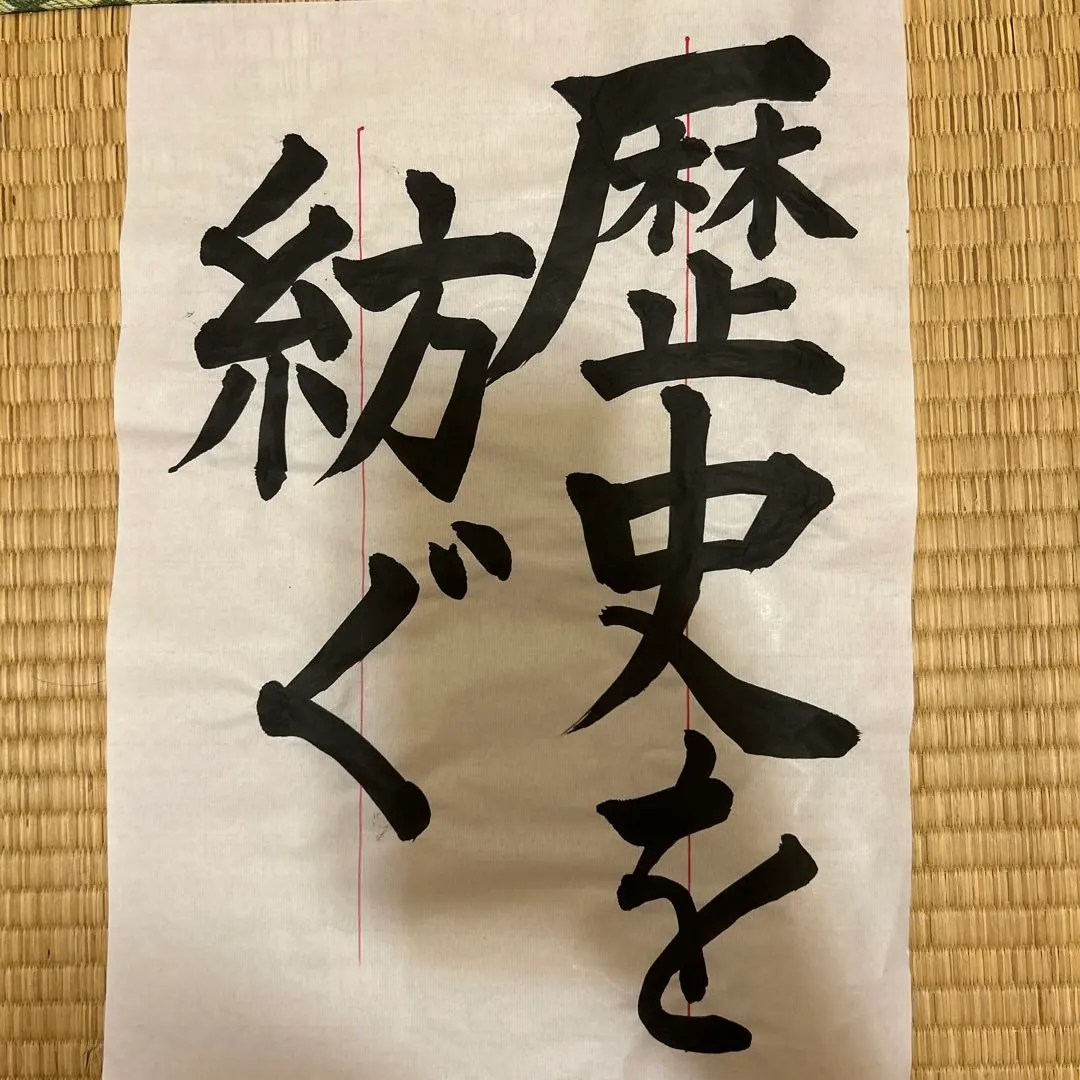 歴史を
紡ぐ